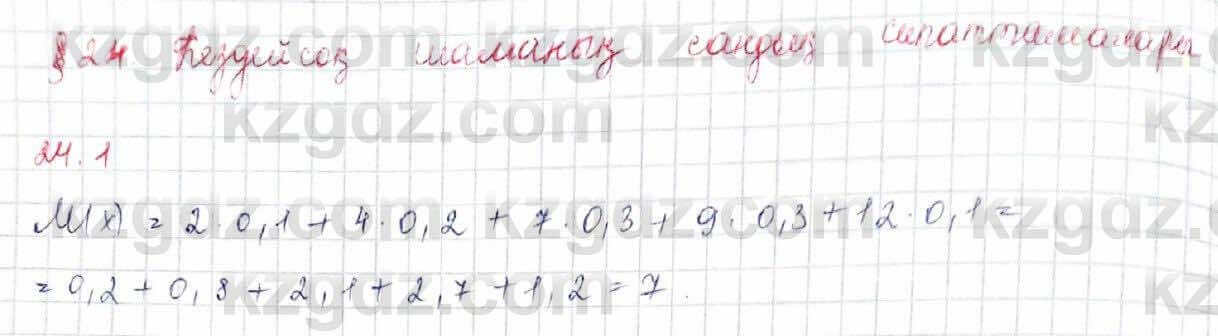 § 24 Кездейсоқ шаманың сандық сипаттамалары
24.1
M(x) = 2·0,1 + 4·0,2 + 7·0,3 + 9·0,3 + 12·0,1 =
= 0,2 + 0,8 + 2,1 + 2,7 + 1,2 = 7.
kzgdz.com